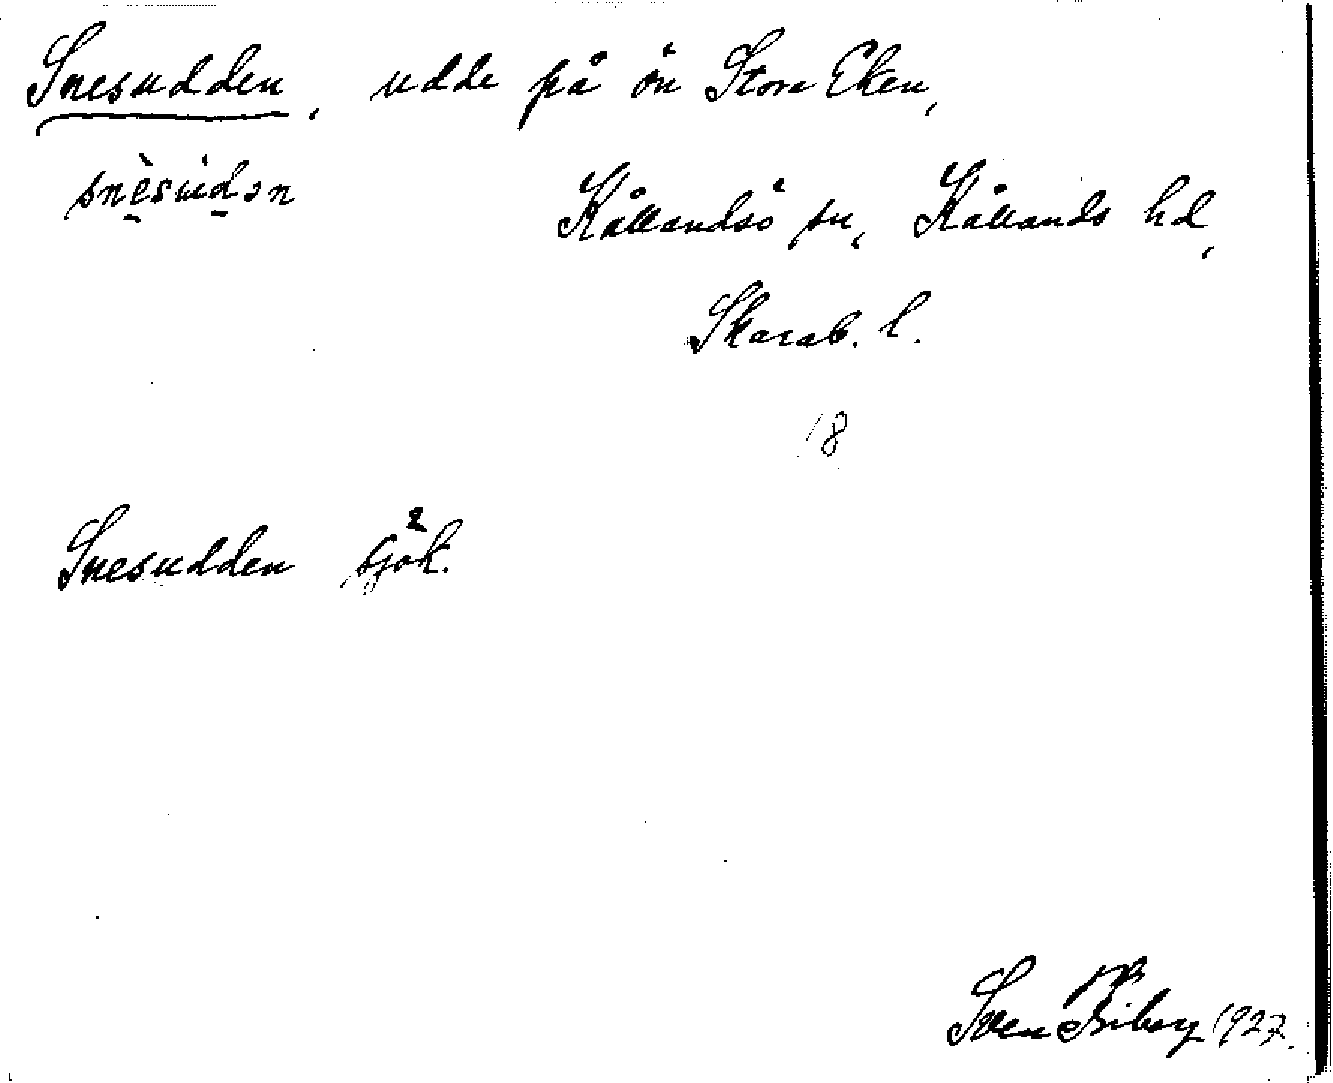 Snesudden, udde på ön Stora Eken,
snèsùdən
Kållandsö sn, Kållands hd,
Skarab. l.
18
Snesudden sjök.
Sven 1927.